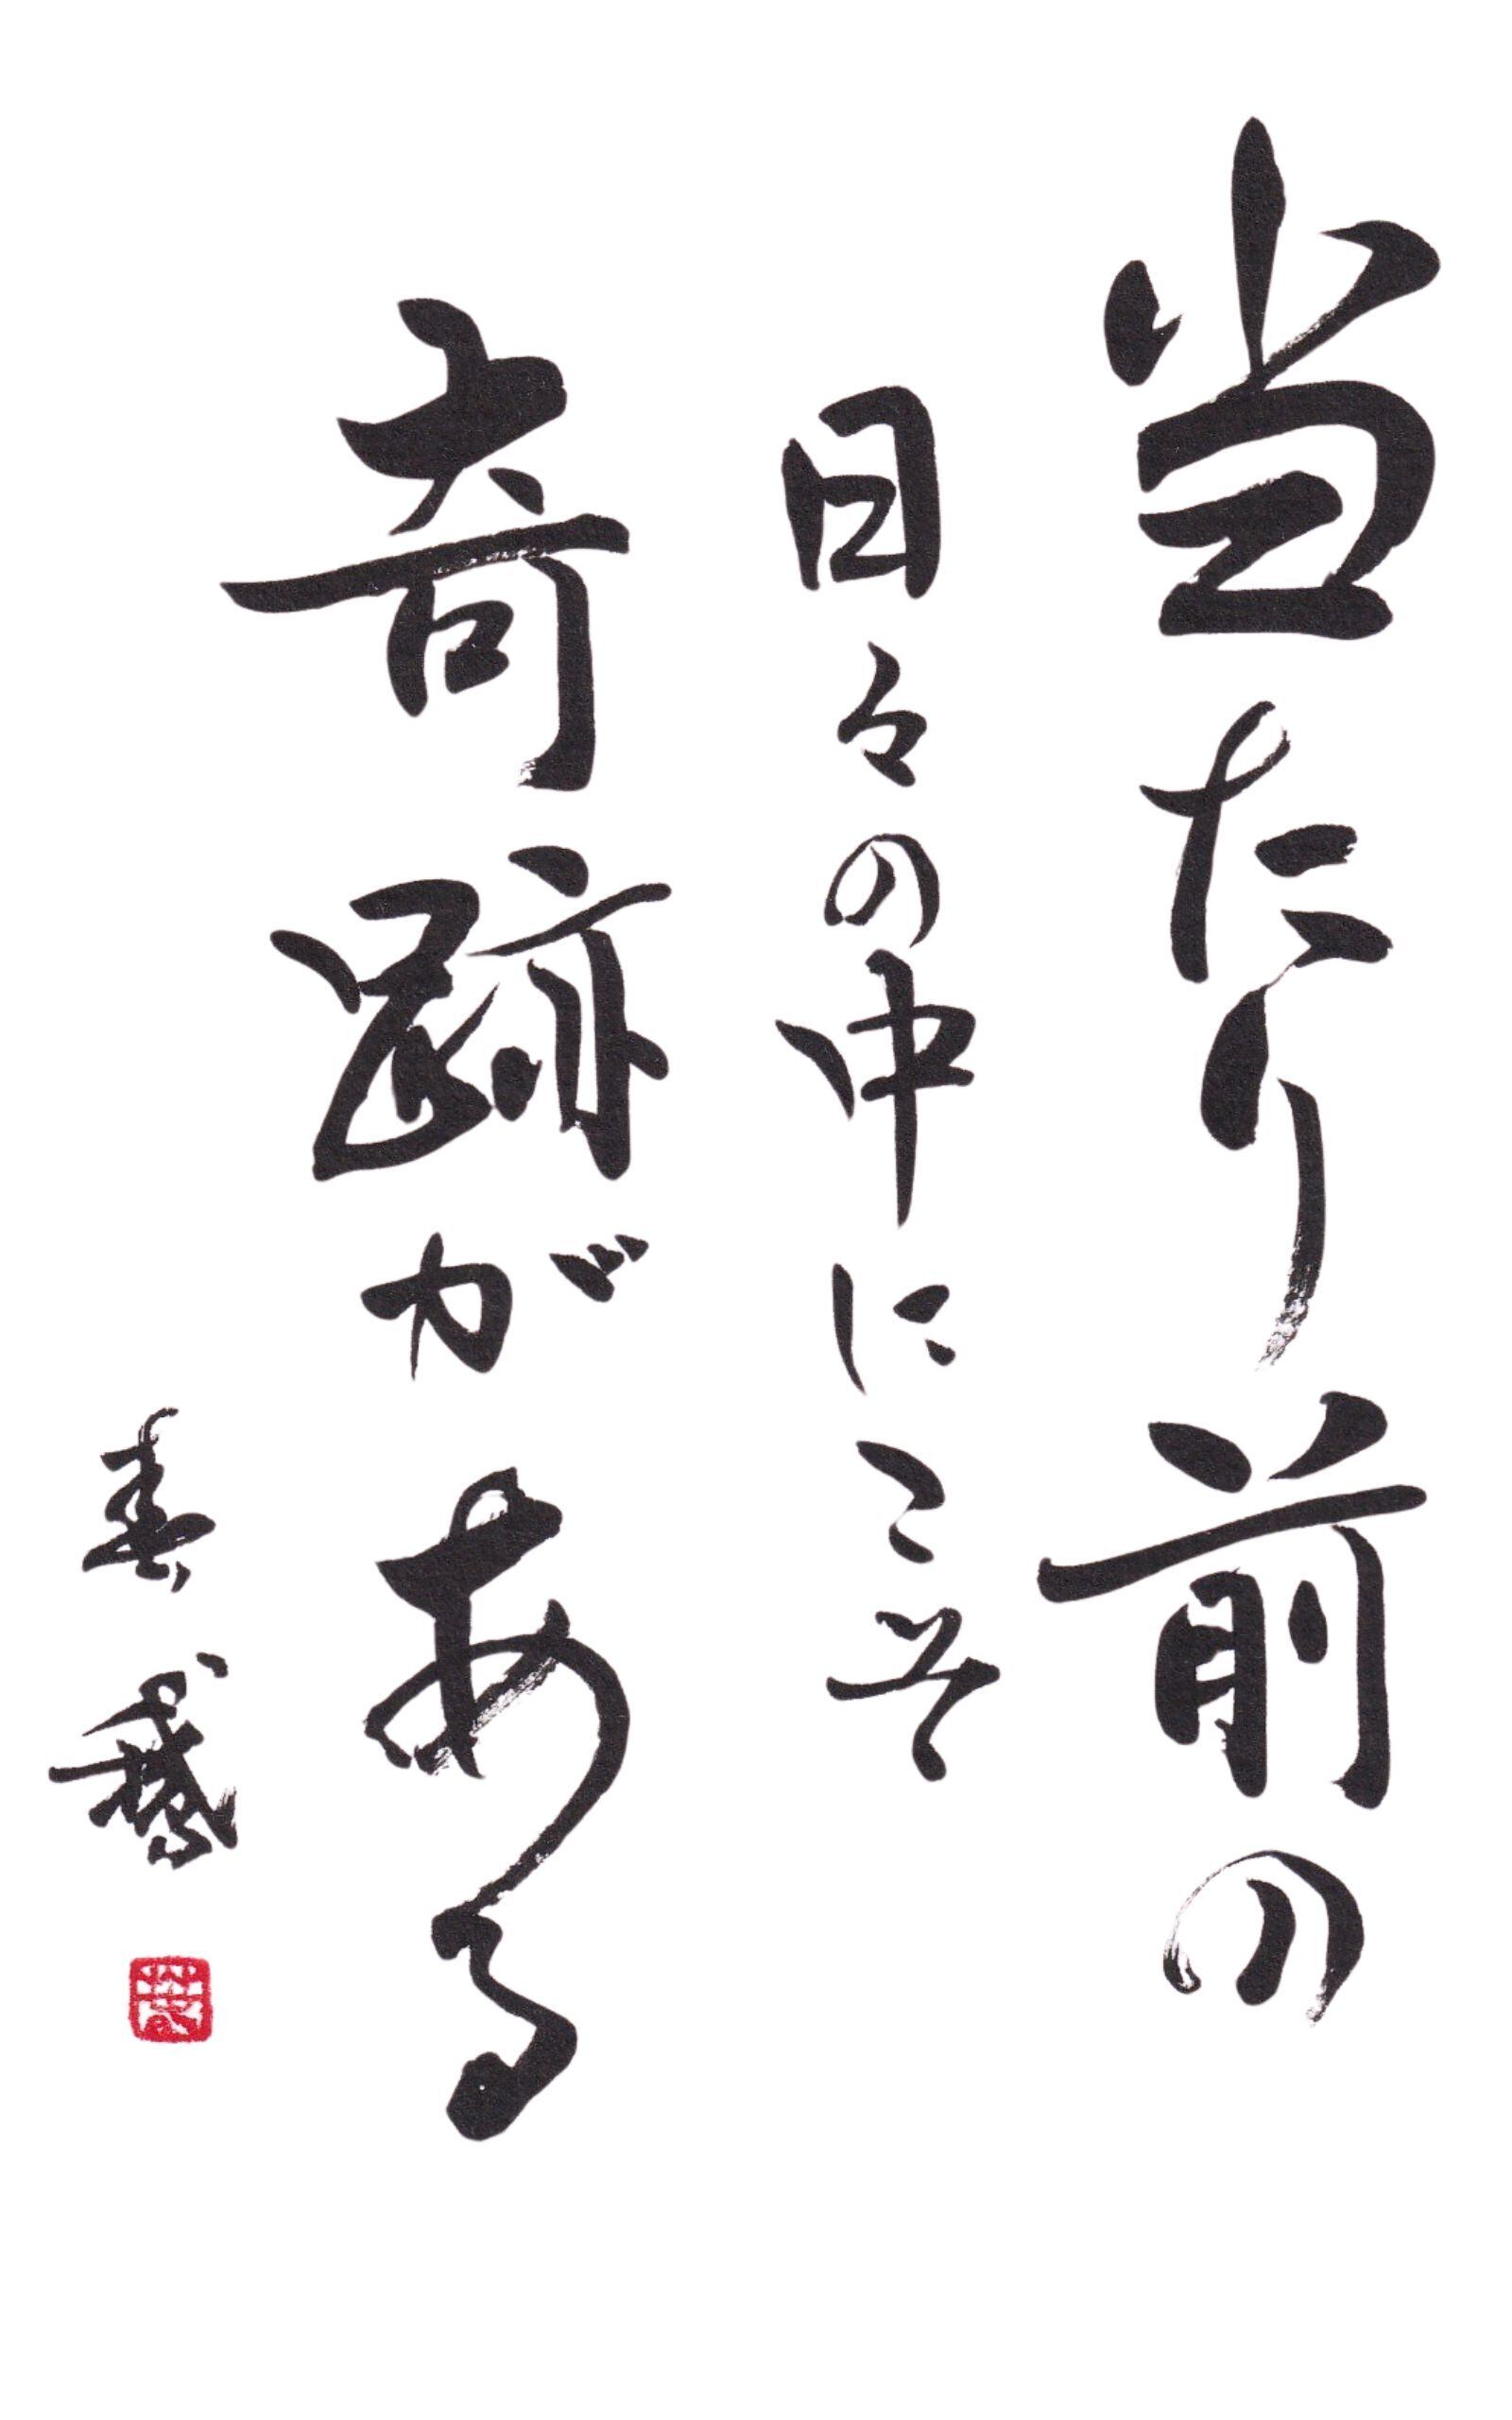 当たり前の
日々の中にこそ
奇跡がある
春鵞